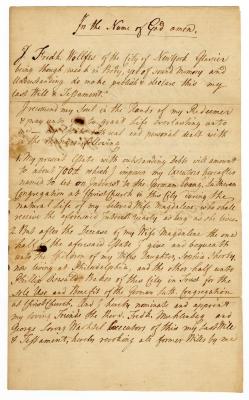 In the Name of God amen.
I Fredk. Wolffes of the City of NewYork Glazier
being though weak in Body, yet of sound memory and
Understanding do make publish & declare this my
Last Will & Testament.
I recommend my Soul in the Hands of my Redeemer
& may unto to grant life Everlasting unto
me and personal dealt with
the
My present Estate with outstanding Debts will amount
to about which I impress my Executors hereafter
named to let on Interest to the German Evang. Lutheran
Congregation at Christ Church in this City during the
Natural life of my beloved Wife Magdalene, who shall
receive the aforesaid Interest yearly as long as she lives.
But after the Decease of my Wife Magdalene the one
half of the aforesaid Estate I give and bequeath
unto the Children of my Wifes Daughter, Sophia
now living at Philadelphia, and the other half unto
Philip Baker of this City in trust for the
Sole Use and Benefit of the German Luth. Congregation
at Christ Church, And I hereby nominate and appoint
my loving Friends the Revd. Fredk. Muhlenberg and
George Executors of this my Last Will
& Testament, hereby revoking all former Wills by me